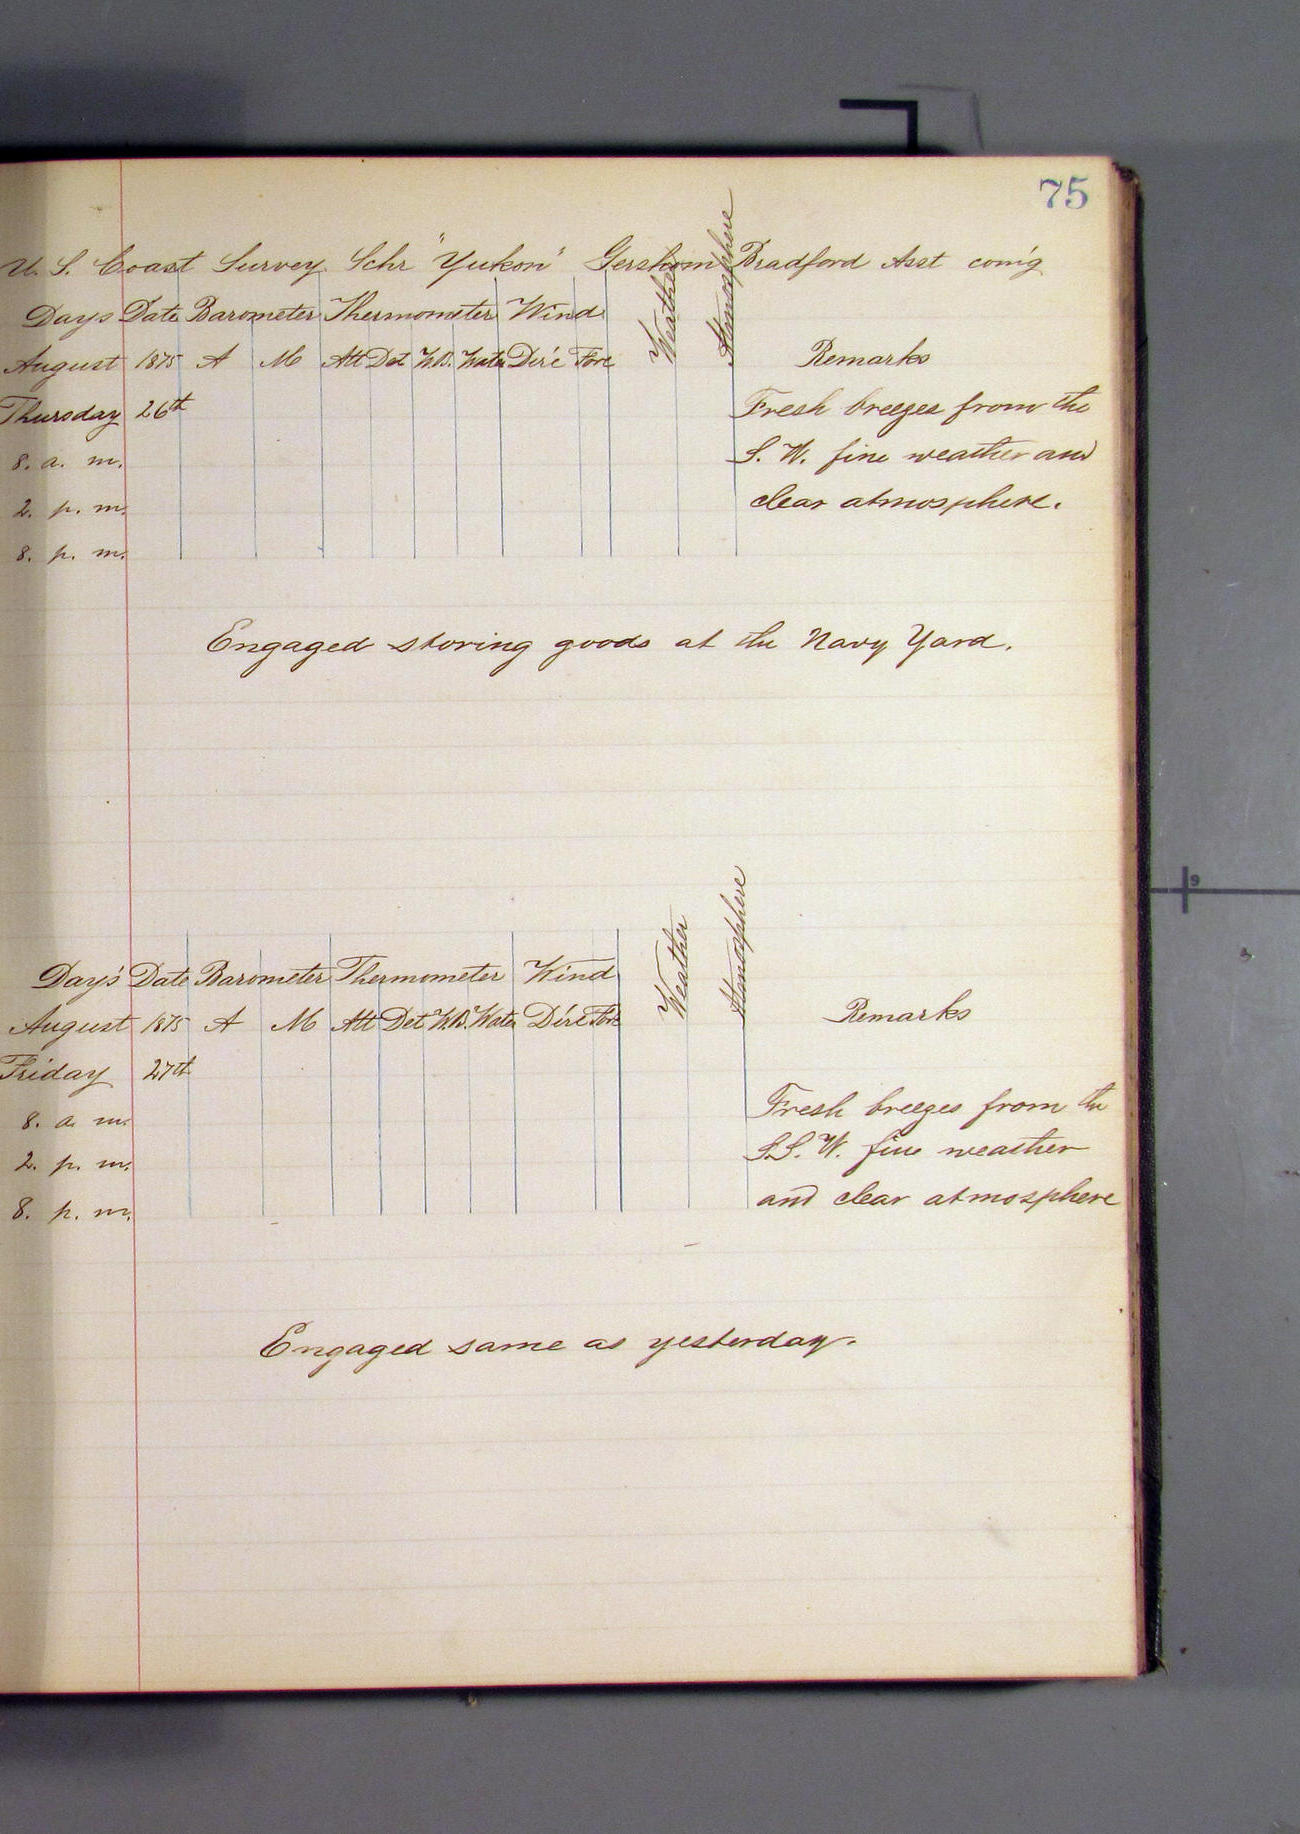 75
U. S. Coast Survey Schr "Yukon" Gershom Bradford Asst com'g
Days Date Barometer Thermometer Wind Weather Atmosphere
August 1875 A M Att Det W.B. Water Dir'c Forc Remarks
Thursday 26th Fresh breezes from the
8. a. m. S. W. fine weather and
2. p. m. clear atmosphere.
8. p. m.
Engaged storing goods at the Navy Yard.
Day's Date Barometer Thermometer Wind Weather Atmosphere
August 1875 A M Att Det W.B. Water Dir'c Forc Remarks
Friday 27th
8. a. m. Fresh breezes from the
2. p. m. S.S. W. fine weather
8. p. m. and clear atmosphere
Engaged same as yesterday.
9